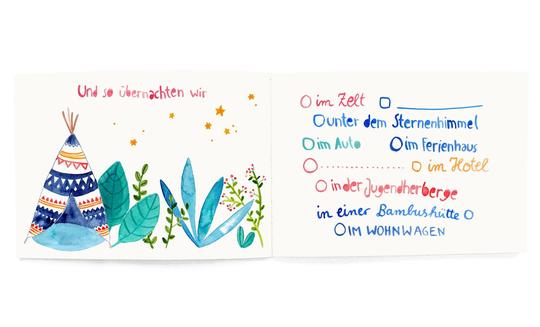 Und so übernachten wir
im Zelt
unter dem Sternenhimmel
im Auto im Ferienhaus
im Hotel
in der Jugendherberge
in einer Bambushütte
IM WOHNWAGEN